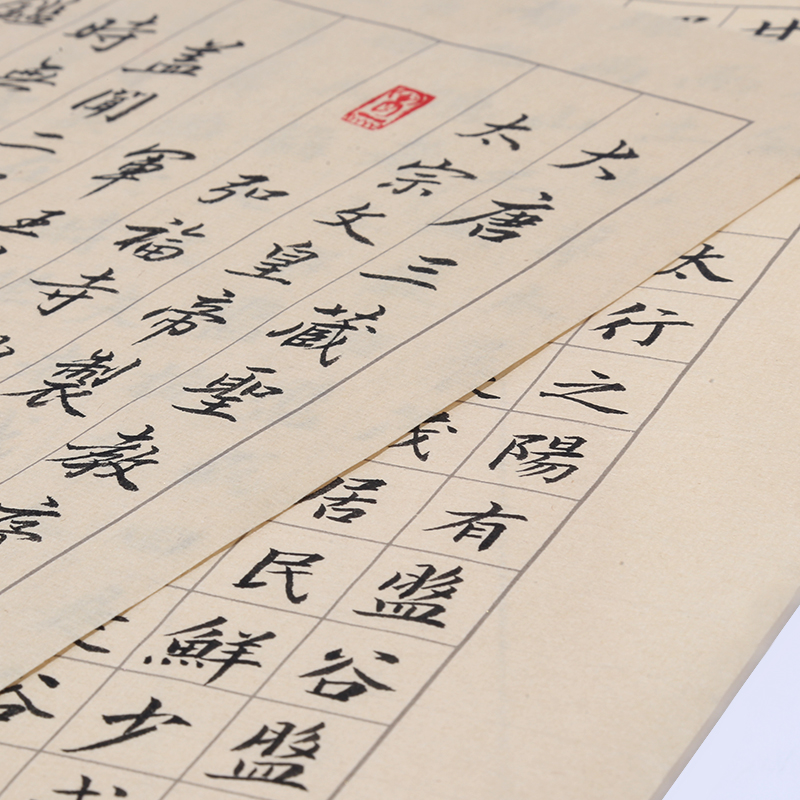 大唐三藏聖教序
太宗文皇帝製
弘福寺
軍王
蓋聞二
時無
鑑
太行之陽有盤谷盤
茂居民鮮少或
谷